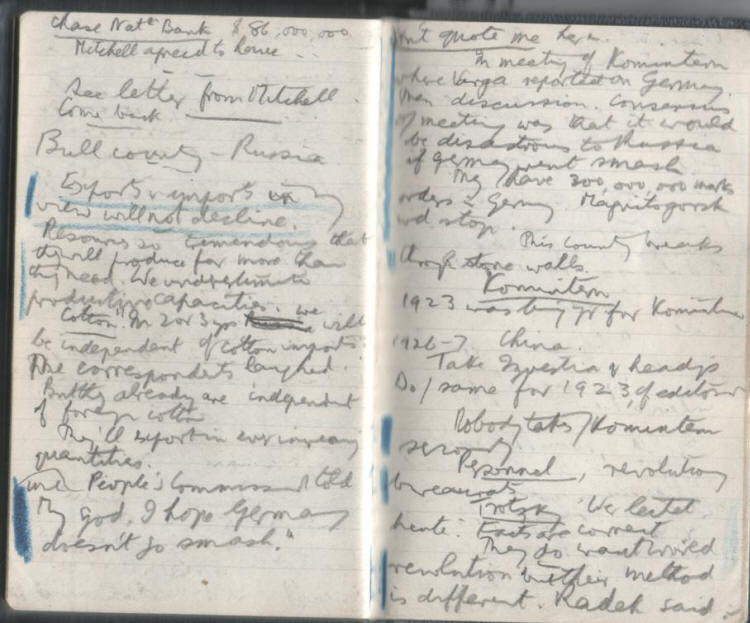 Chase Natl Bank $86,000,000
Mitchell agreed to house
See letter from Mitchell.
Come back
Bull county - Russia
Exports & imports in
view will not decline.
Resources so tremendous that
they will produce for more than
they need. We underestimate
productive capacities.
Cotton. "In 2 or 3 yrs we will
be independent of cotton imports."
The correspondents laughed.
But they already are independent
of foreign cotton
They'll export in ever increasing
quantities.
People's Commissar told
"My god, I hope Germany
doesn't go smash."
Don't quote me here.
In meeting of Komintern
where Varga reported on Germany.
Then discussion. Consensus
of meeting was that it would
be disastrous to Russia
if Germany went smash.
They have 300,000,000 marks
orders in Germany Magnitogorsk
wd stop.
This county breaks
through stone walls.
Komintern
1923 was big yr for Komintern
1926-7 China.
Take Izvestia & headgs
Do / same for 1923, of editorials
Nobody takes / Komintern
seriously.
Personnel, revolutionary
bureaucrats
Trotsky
Facts are correct
They do want world
revolution but their method
is different. Radek said